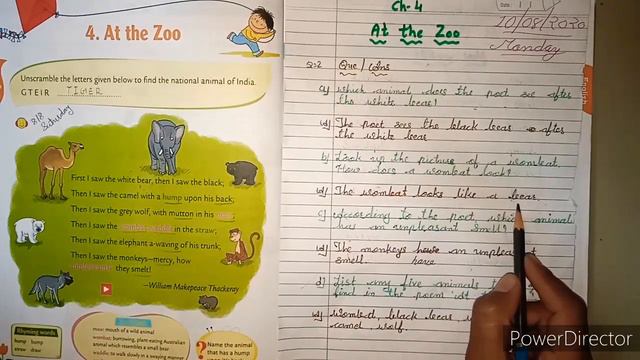 4. At the Zoo
Unscramble the letters given below to find the national animal of India.
GTEIR TIGER
8/8
Saturday
First I saw the white bear, then I saw the black;
Then I saw the camel with a hump upon his back;
Then I saw the grey wolf, with mutton in his
Then I saw the in the straw;
Then I saw the elephant a-waving of his trunk;
Then I saw the monkeys—mercy, how
they smelt!
—William Makepeace Thackeray
Rhyming words
hump bump
straw draw
maw: mouth of a wild animal
wombat: burrowing, plant-eating Australian
animal which resembles a small bear
waddle: to walk slowly in a swaying manner
Name the animal
that has a hump
Ch-4
At the Zoo
10/08/2020
Monday
English
Q.2 Que / Ans
a) Which animal does the poet see after
the white bear?
The poet sees the black bear after
the white bear
b) Look up the picture of a wombat.
How does a wombat look?
The wombat looks like a bear.
c) According to the poet, which animal
has an unpleasant smell?
The monkeys have an unpleasant
smell. have
d) List any five animals
find in the poem
wombat, black bear,
camel, wolf.
PLAYING
WonderShare